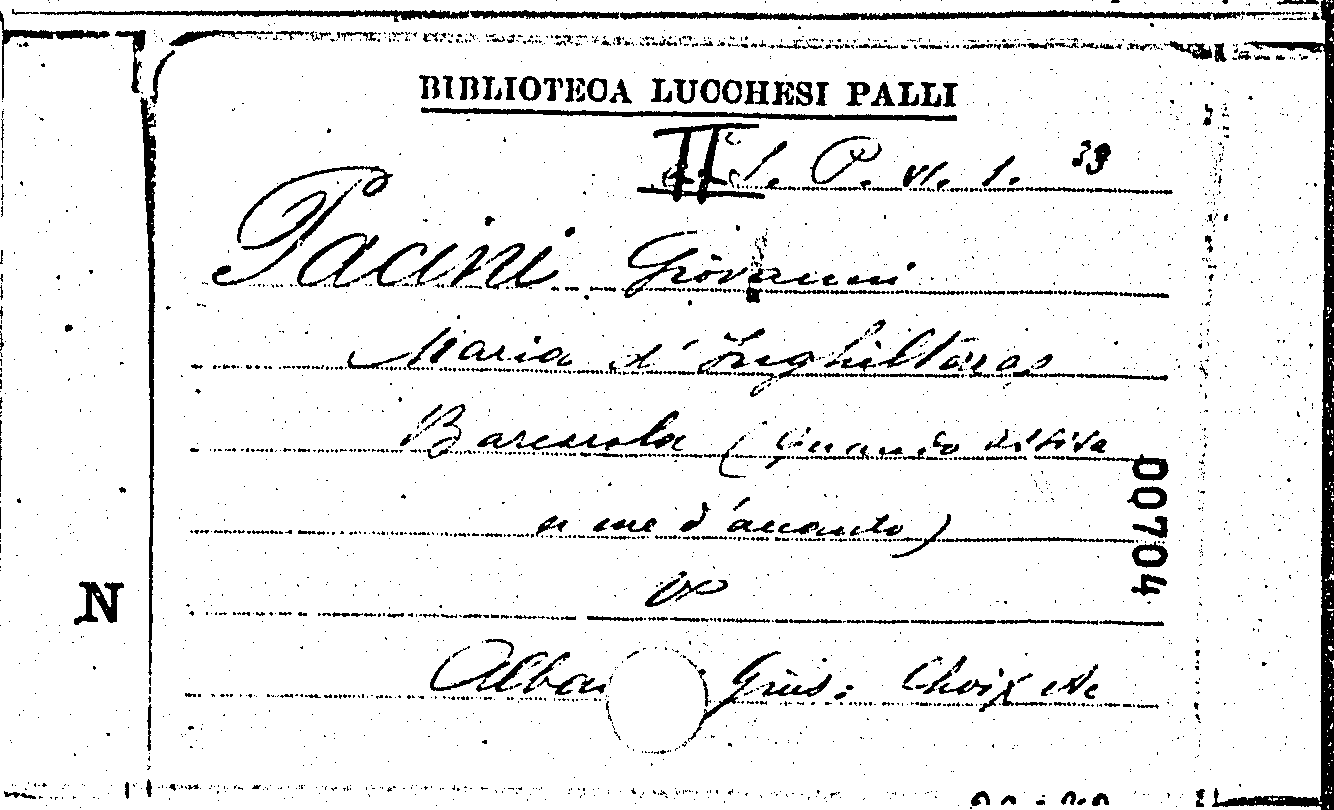 BIBLIOTECA LUCCHESI PALLI
II L. P. VI. 1. 39
Pacini Giovanni
Maria d'Inghilterra
Barcarola (Quando assisa
a me d'accanto)
V
Alba Gius: Choix etc
00704
N